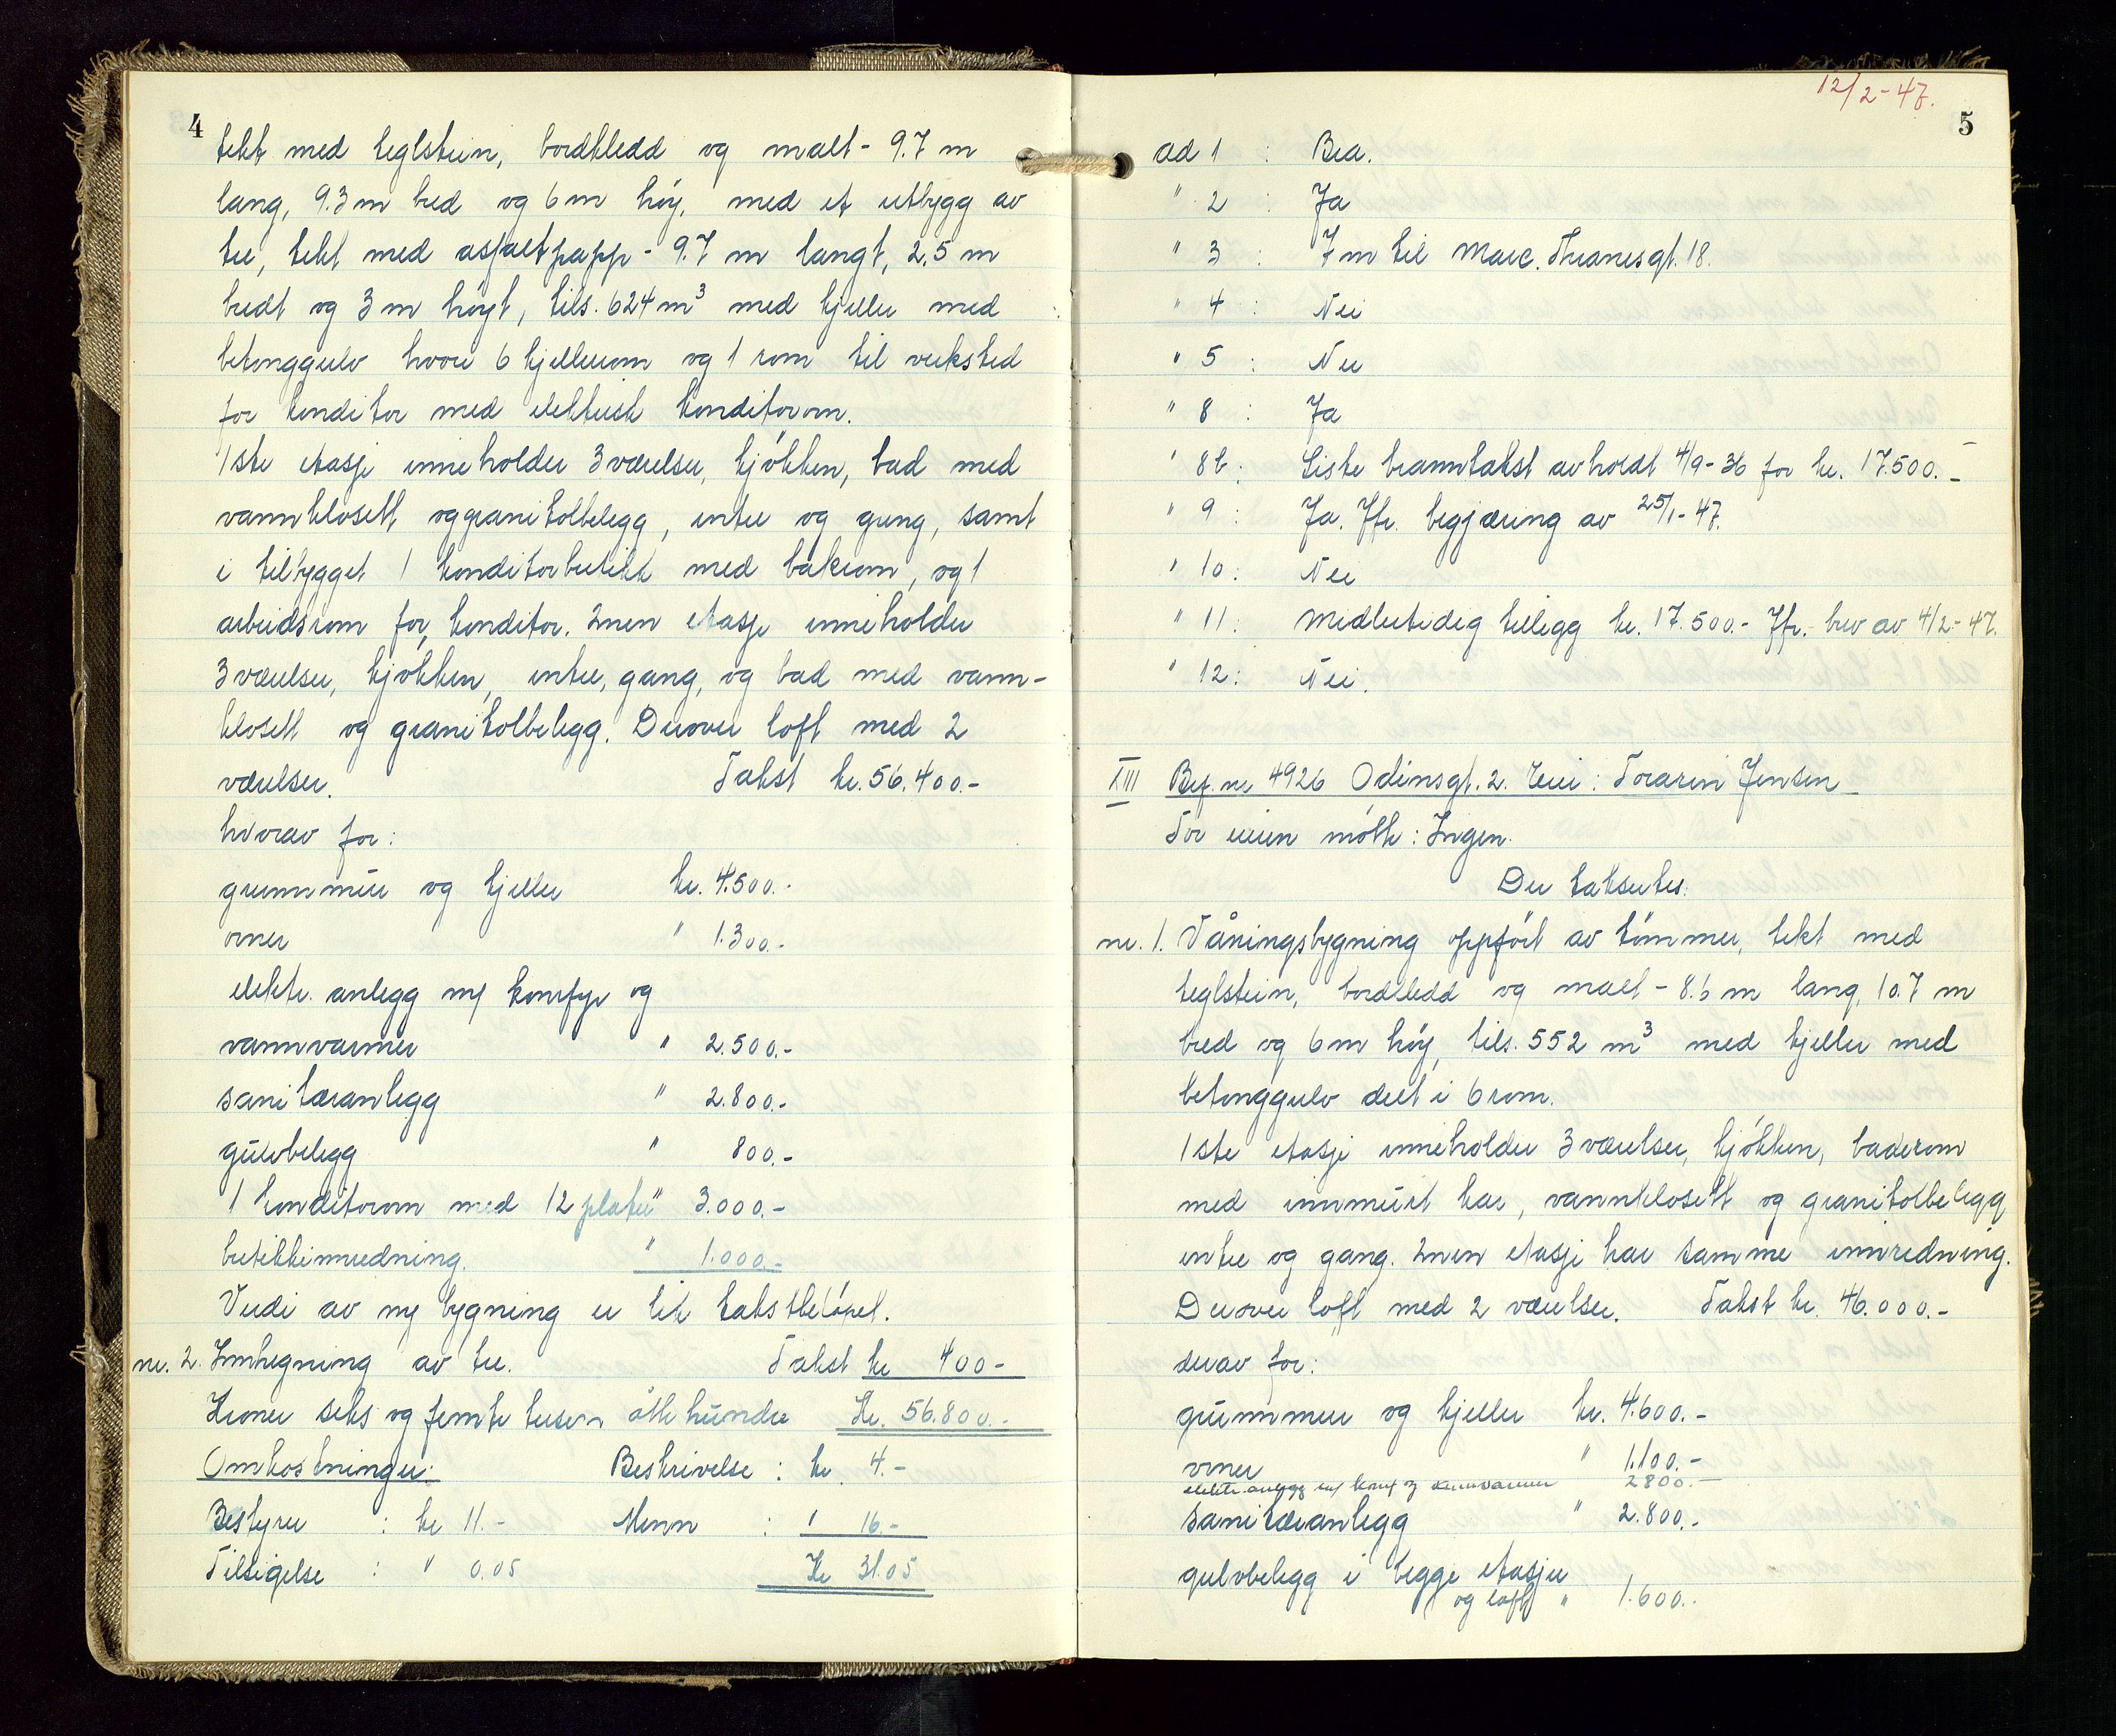 4
tekt med teglstein, bordkledd og malt - 9.7 m
lang, 9.3 m bred og 6 m høy, med et utbygg av
tre, tekt med asfaltpapp - 9.7 m langt, 2.5 m
bredt og 3 m høyt, tils. 624 m³ med kjeller med
betonggulv hvori 6 kjellerrom og 1 rom til verksted
for konditor med elektrisk konditorovn.
1ste etasje inneholder 3 værelser, kjøkken, bad med
vannklosett og granitolbelegg, entre og gang, samt
i tilbygget 1 konditorbutikk med bakrom, og 1
arbeidsrom for konditor. 2nen etasje inneholder
3 værelser, kjøkken, entre, gang, og bad med vann-
klosett og granitolbelegg. Derover loft med 2
værelser. Takst kr. 56.400.-
hvorav for:
grunnmur og kjeller kr. 4.500.-
ovner " 1.300.-
elektr. anlegg m/ komfyr og
vannvarmer " 2.500.-
sanitæranlegg " 2.800.-
gulvbelegg " 800.-
1 konditorovn med 12 plater " 3.000.-
butikkinnredning. " 1.000.-
Verdi av ny bygning er lik takstbeløpet.
nr. 2. Innhegning av tre. Takst kr 400-
Kroner seks og femti tusen åtte hundre Kr. 56.800.-
Omkostninger: Beskrivelse : kr 4.-
Bestyrer : kr 11.- Menn : " 16.-
Tilsigelse : " 0.05 Kr 31.05
12/2-47.
5
ad 1 : Bra.
" 2 : Ja
" 3 : 7 m til Marc. Thranesgt. 18.
" 4 : Nei
" 5 : Nei
" 8 : Ja
" 8b : Siste branntakst avholdt 4/9-36 for kr. 17.500.-
" 9 : Ja. Jfr. begjæring av 25/1-47.
" 10 : Nei
" 11 : Midlertidig tillegg kr. 17.500.- Jfr. brev av 4/2-47.
" 12 : Nei.
XIII Bef. nr 4926 Odinsgt. 2. Eier: Torarin Jensen
For eieren møtte: Ingen.
Der takseres:
nr. 1. Våningsbygning oppført av tømmer, tekt med
teglstein, bordkledd og malt - 8.6 m lang, 10.7 m
bred og 6 m høy, tils. 552 m³ med kjeller med
betonggulv delt i 6 rom.
1ste etasje inneholder 3 værelser, kjøkken, baderom
med innmurt kar, vannklosett og granitolbelegg
entre og gang. 2nen etasje har samme innredning.
Derover loft med 2 værelser. Takst kr. 46.000.-
derav for:
grunnmur og kjeller kr. 4.600.-
ovner " 1.100.-
elektr. anlegg m/ komf og vannvarmer 2800.-
sanitæranlegg " 2.800.-
gulvbelegg i begge etasjer
og loft " 1.600.-